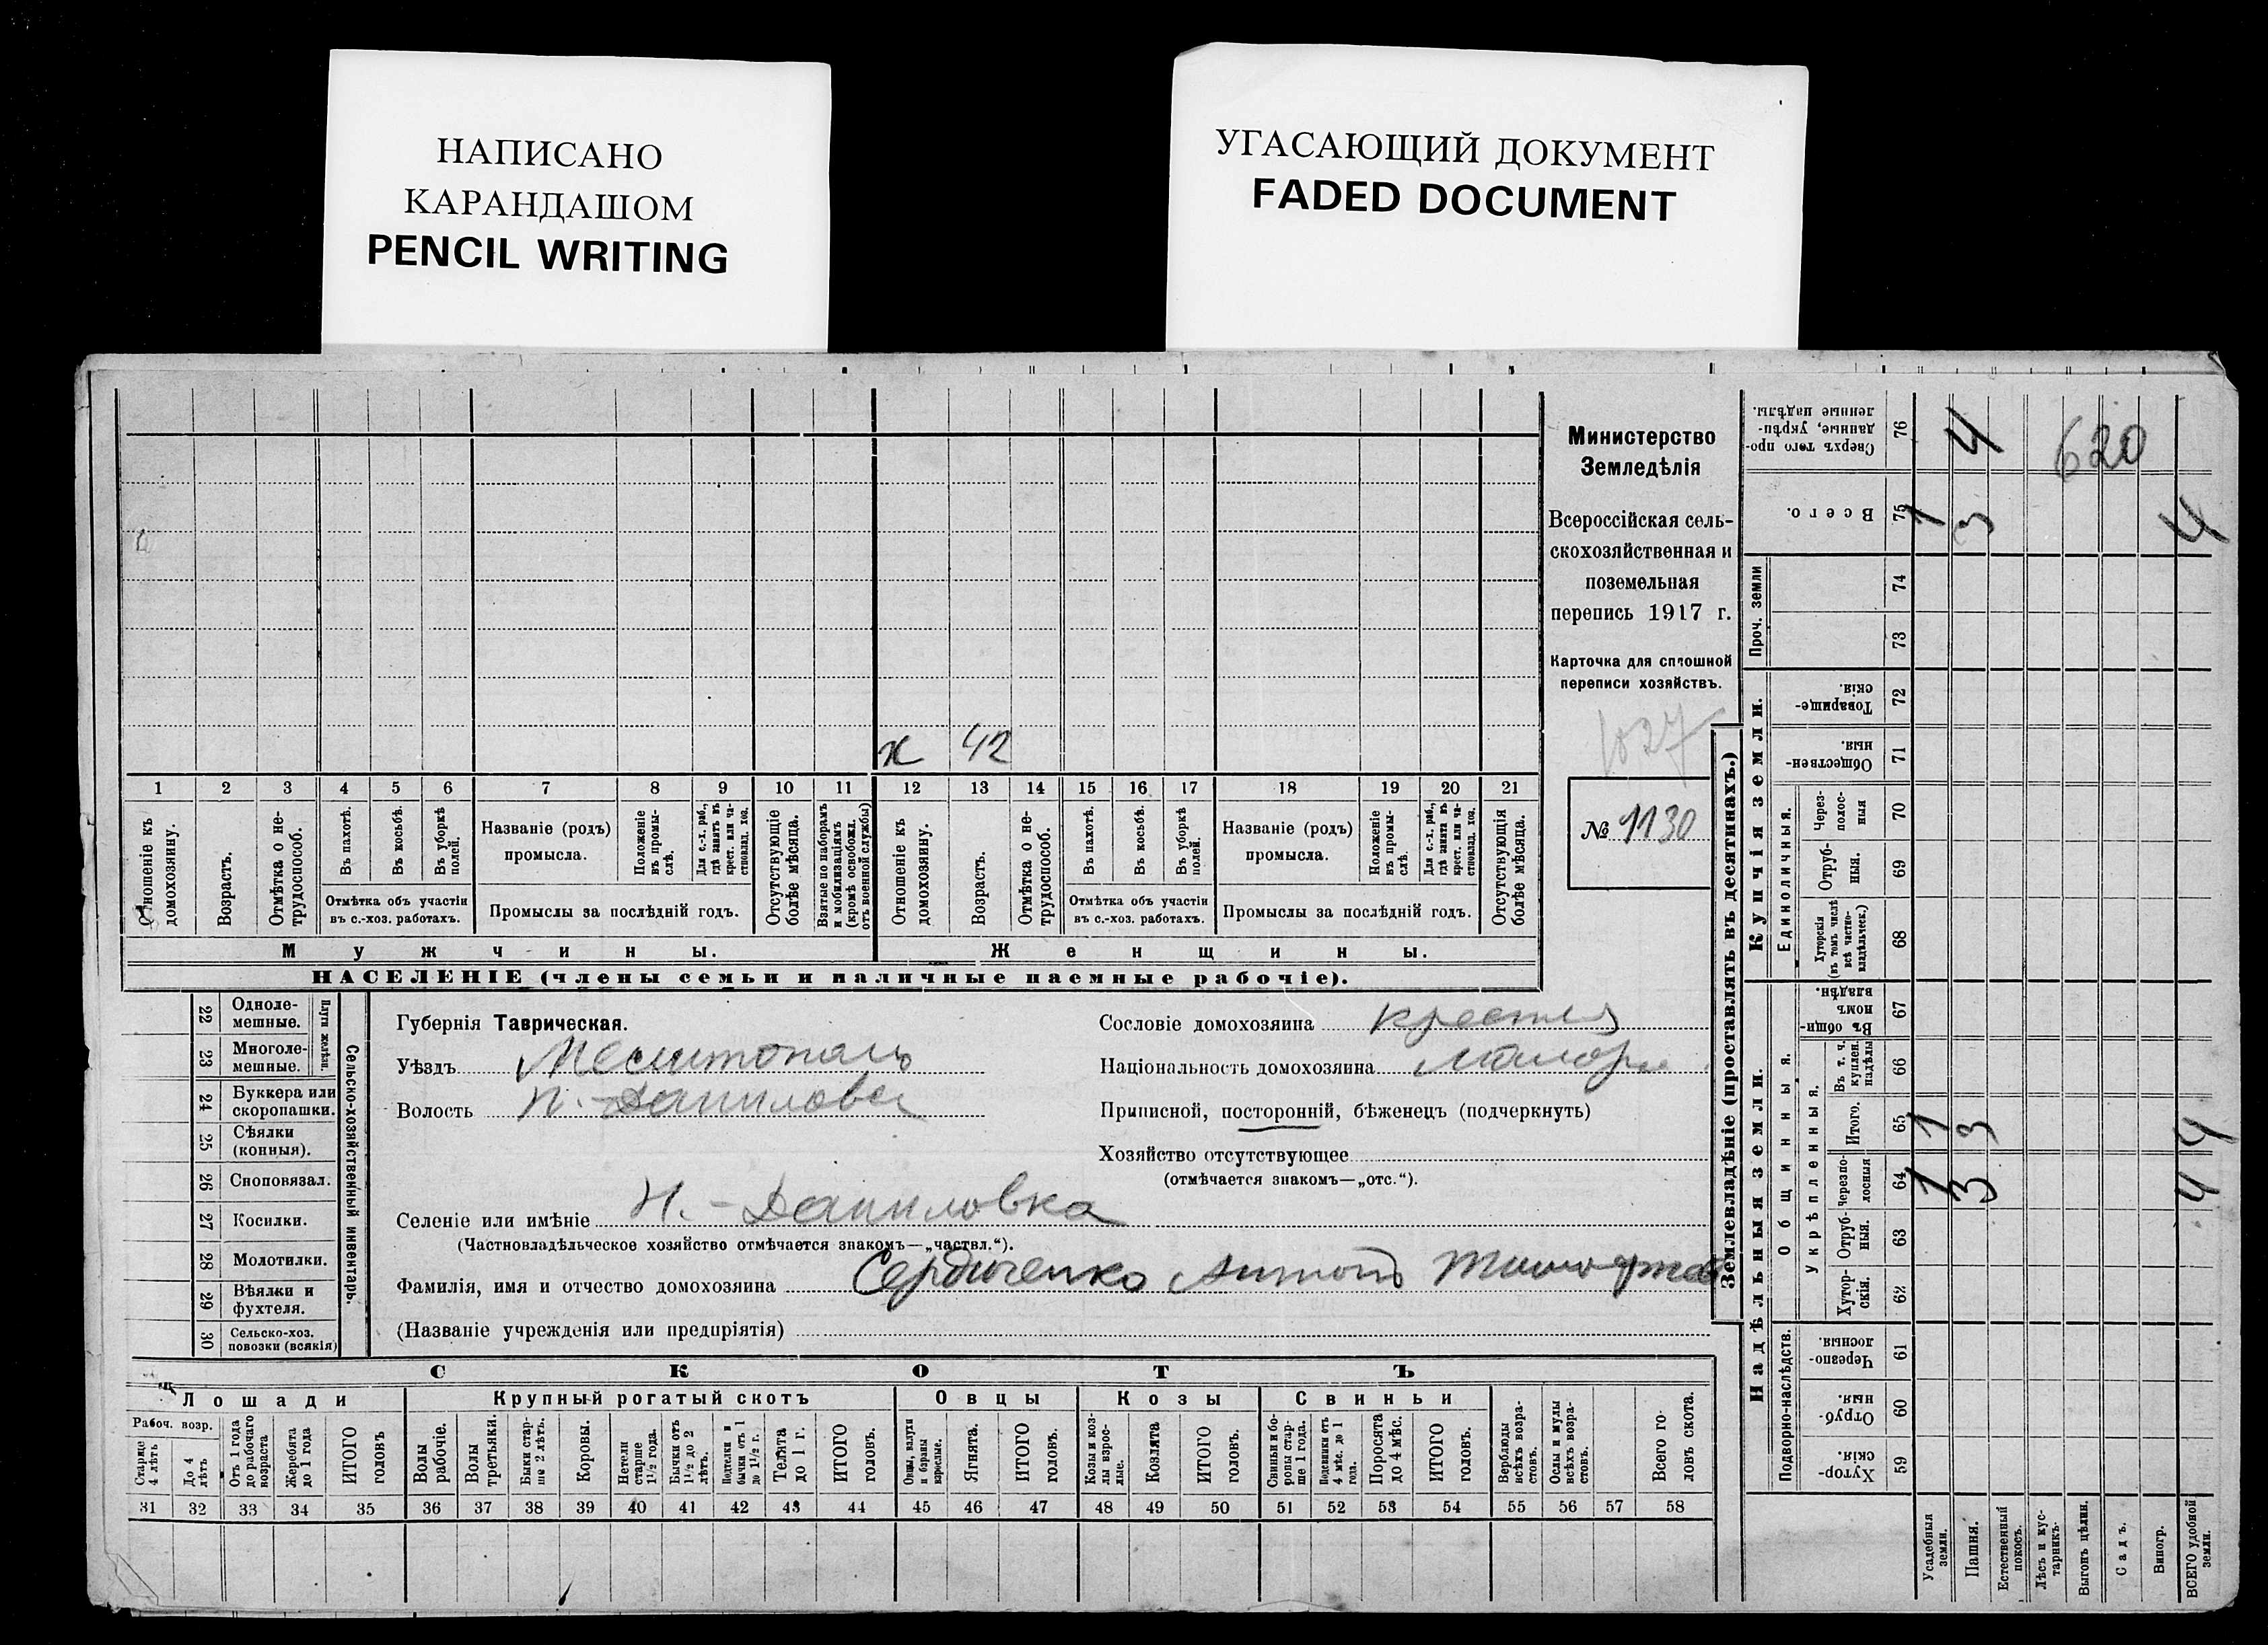 НАПИСАНО
КАРАНДАШОМ
PENCIL WRITING
УГАСАЮЩИЙ ДОКУМЕНТ
FADED DOCUMENT
Министерство
Земледѣлія
Всероссійская сель-
скохозяйственная и
поземельная
перепись 1917 г.
Карточка для сплошной
переписи хозяйствъ.
1027
№ 1130
ж 42
1 2 3 4 5 6 7 8 9 10 11 12 13 14 15 16 17 18 19 20 21
Отношеніе къ домохозяину.
Возрастъ.
Отмѣтка о не-трудоспособ.
Въ пахотѣ.
Въ косьбѣ.
Въ уборкѣ полей.
Отмѣтка объ участіи
въ с.-хоз. работахъ.
Названіе (родъ)
промысла.
Положеніе въ промы-слѣ.
Для с.-х. раб., гдѣ занятъ въ крест. или ча-стновлад. хоз.
Промыслы за послѣдній годъ.
Отсутствующіе болѣе мѣсяца.
Взятые по наборамъ и мобилизаціямъ (кромѣ освобожд. отъ военной службы)
Отношеніе къ домохозяину.
Возрастъ.
Отмѣтка о не-трудоспособ.
Въ пахотѣ.
Въ косьбѣ.
Въ уборкѣ полей.
Отмѣтка объ участіи
въ с.-хоз. работахъ.
Названіе (родъ)
промысла.
Положеніе въ промы-слѣ.
Для с.-х. раб., гдѣ занята въ крест. или ча-стновлад. хоз.
Промыслы за послѣдній годъ.
Отсутствующія болѣе мѣсяца.
Мужчины.
Женщины.
НАСЕЛЕНІЕ (члены семьи и наличные наемные рабочіе).
22 Одноле-мешные.
23 Многоле-мешные.
Плуги желѣзн.
24 Буккера или скоропашки.
25 Сѣялки (конныя).
26 Сноповязал.
27 Косилки.
28 Молотилки.
29 Вѣялки и фухтеля.
30 Сельско-хоз. повозки (всякія)
Сельско-хозяйственный инвентарь.
Губернія Таврическая.
Уѣздъ Мелитополь
Волость Н.-Даниловка
Сословіе домохозяина крестья
Національность домохозяина Малорос
Приписной, посторонній, бѣженецъ (подчеркнуть)
Хозяйство отсутствующее
(отмѣчается знакомъ—„отс.“).
Селеніе или имѣніе Н.-Даниловка
(Частновладѣльческое хозяйство отмѣчается знакомъ—„частвл.“).
Фамилія, имя и отчество домохозяина Сердюченко Антонъ Тимофеев
(Названіе учрежденія или предпріятія)
СКОТЪ
Лошади
Крупный рогатый скотъ
Овцы
Козы
Свиньи
Рабоч. возр.
Старше 4 лѣтъ
До 4 лѣтъ
Отъ 1 года до рабочаго возраста
Жеребята до 1 года
ИТОГО головъ
Волы рабочіе.
Волы третьяки.
Быки стар-ше 2 лѣтъ.
Коровы.
Нетели старше 1½ года.
Бычки отъ 1½ до 2 лѣтъ.
Подтелки и бычки отъ 1 до 1½ г.
Телята до 1 г.
ИТОГО головъ.
Овцы, валухи и бараны взрослые.
Ягнята.
ИТОГО головъ.
Козы и коз-лы взрос-лые.
Козлята
ИТОГО головъ.
Свиньи и бо-ровы стар-ше 1 года.
Подсвинки отъ 4 мѣс. до 1 года.
Поросята до 4 мѣс.
ИТОГО головъ.
Верблюды всѣхъ возра-стовъ.
Ослы и мулы всѣхъ возра-стовъ.
Всего го-ловъ скота.
31 32 33 34 35 36 37 38 39 40 41 42 43 44 45 46 47 48 49 50 51 52 53 54 55 56 57 58
Землевладѣніе (проставлять въ десятинахъ.)
Купчія земли.
Надѣльныя земли.
Сверхъ того про-данные, укрѣп-ленные надѣлы. 76 4 620
Всего. 75 1 3 4
Проч. земли
74
73
Товарище-скія. 72
Обществен-ныя. 71
Единоличныя.
Через-полос-ныя 70
Отруб-ныя. 69
Хуторскія (въ томъ числѣ всѣ частно-владѣльческ.) 68
Общинныя.
Въ общин-номъ владѣн. 67
Укрѣпленныя.
Въ т. ч. куплен. надѣлы 66
Итого. 65 1 3 4
Черезпо-лосныя 64 1 3 4
Отруб-ныя. 63
Хутор-скія. 62
Подворно-наслѣдств.
Черезпо-лосныя. 61
Отруб-ныя. 60
Хутор-скія. 59
Усадебныя земли.
Пашня.
Естественный покосъ.
Лѣсъ и кус-тарникъ.
Выгонъ цѣлин.
Садъ.
Виногр.
ВСЕГО удобной земли.